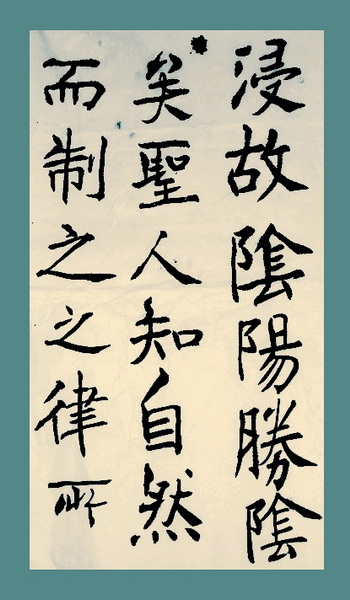 浸故陰陽勝陰
矣聖人知自然
而制之之律所